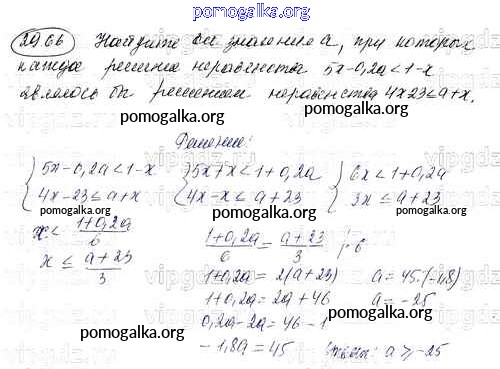 pomogalka.org
29.66 Найдите все значения a, при которых
каждое решение неравенства 5x-0,2a<1-x
являлось бы решением неравенства 4x-23≤a+x.
pomogalka.org
Решение:
{5x-0,2a<1-x {5x+x<1+0,2a {6x<1+0,2a
{4x-23≤a+x {4x-x≤a+23 {3x≤a+23
pomogalka.org pomogalka.org pomogalka.org
x<(1+0,2a)/6
x≤(a+23)/3
(1+0,2a)/6=(a+23)/3 |·6
1+0,2a=2(a+23)
1+0,2a=2a+46
0,2a-2a=46-1
-1,8a=45
a=45:(-1,8)
a=-25
pomogalka.org pomogalka.org
pomogalka.org
Ответ: a≥-25
pomogalka.org